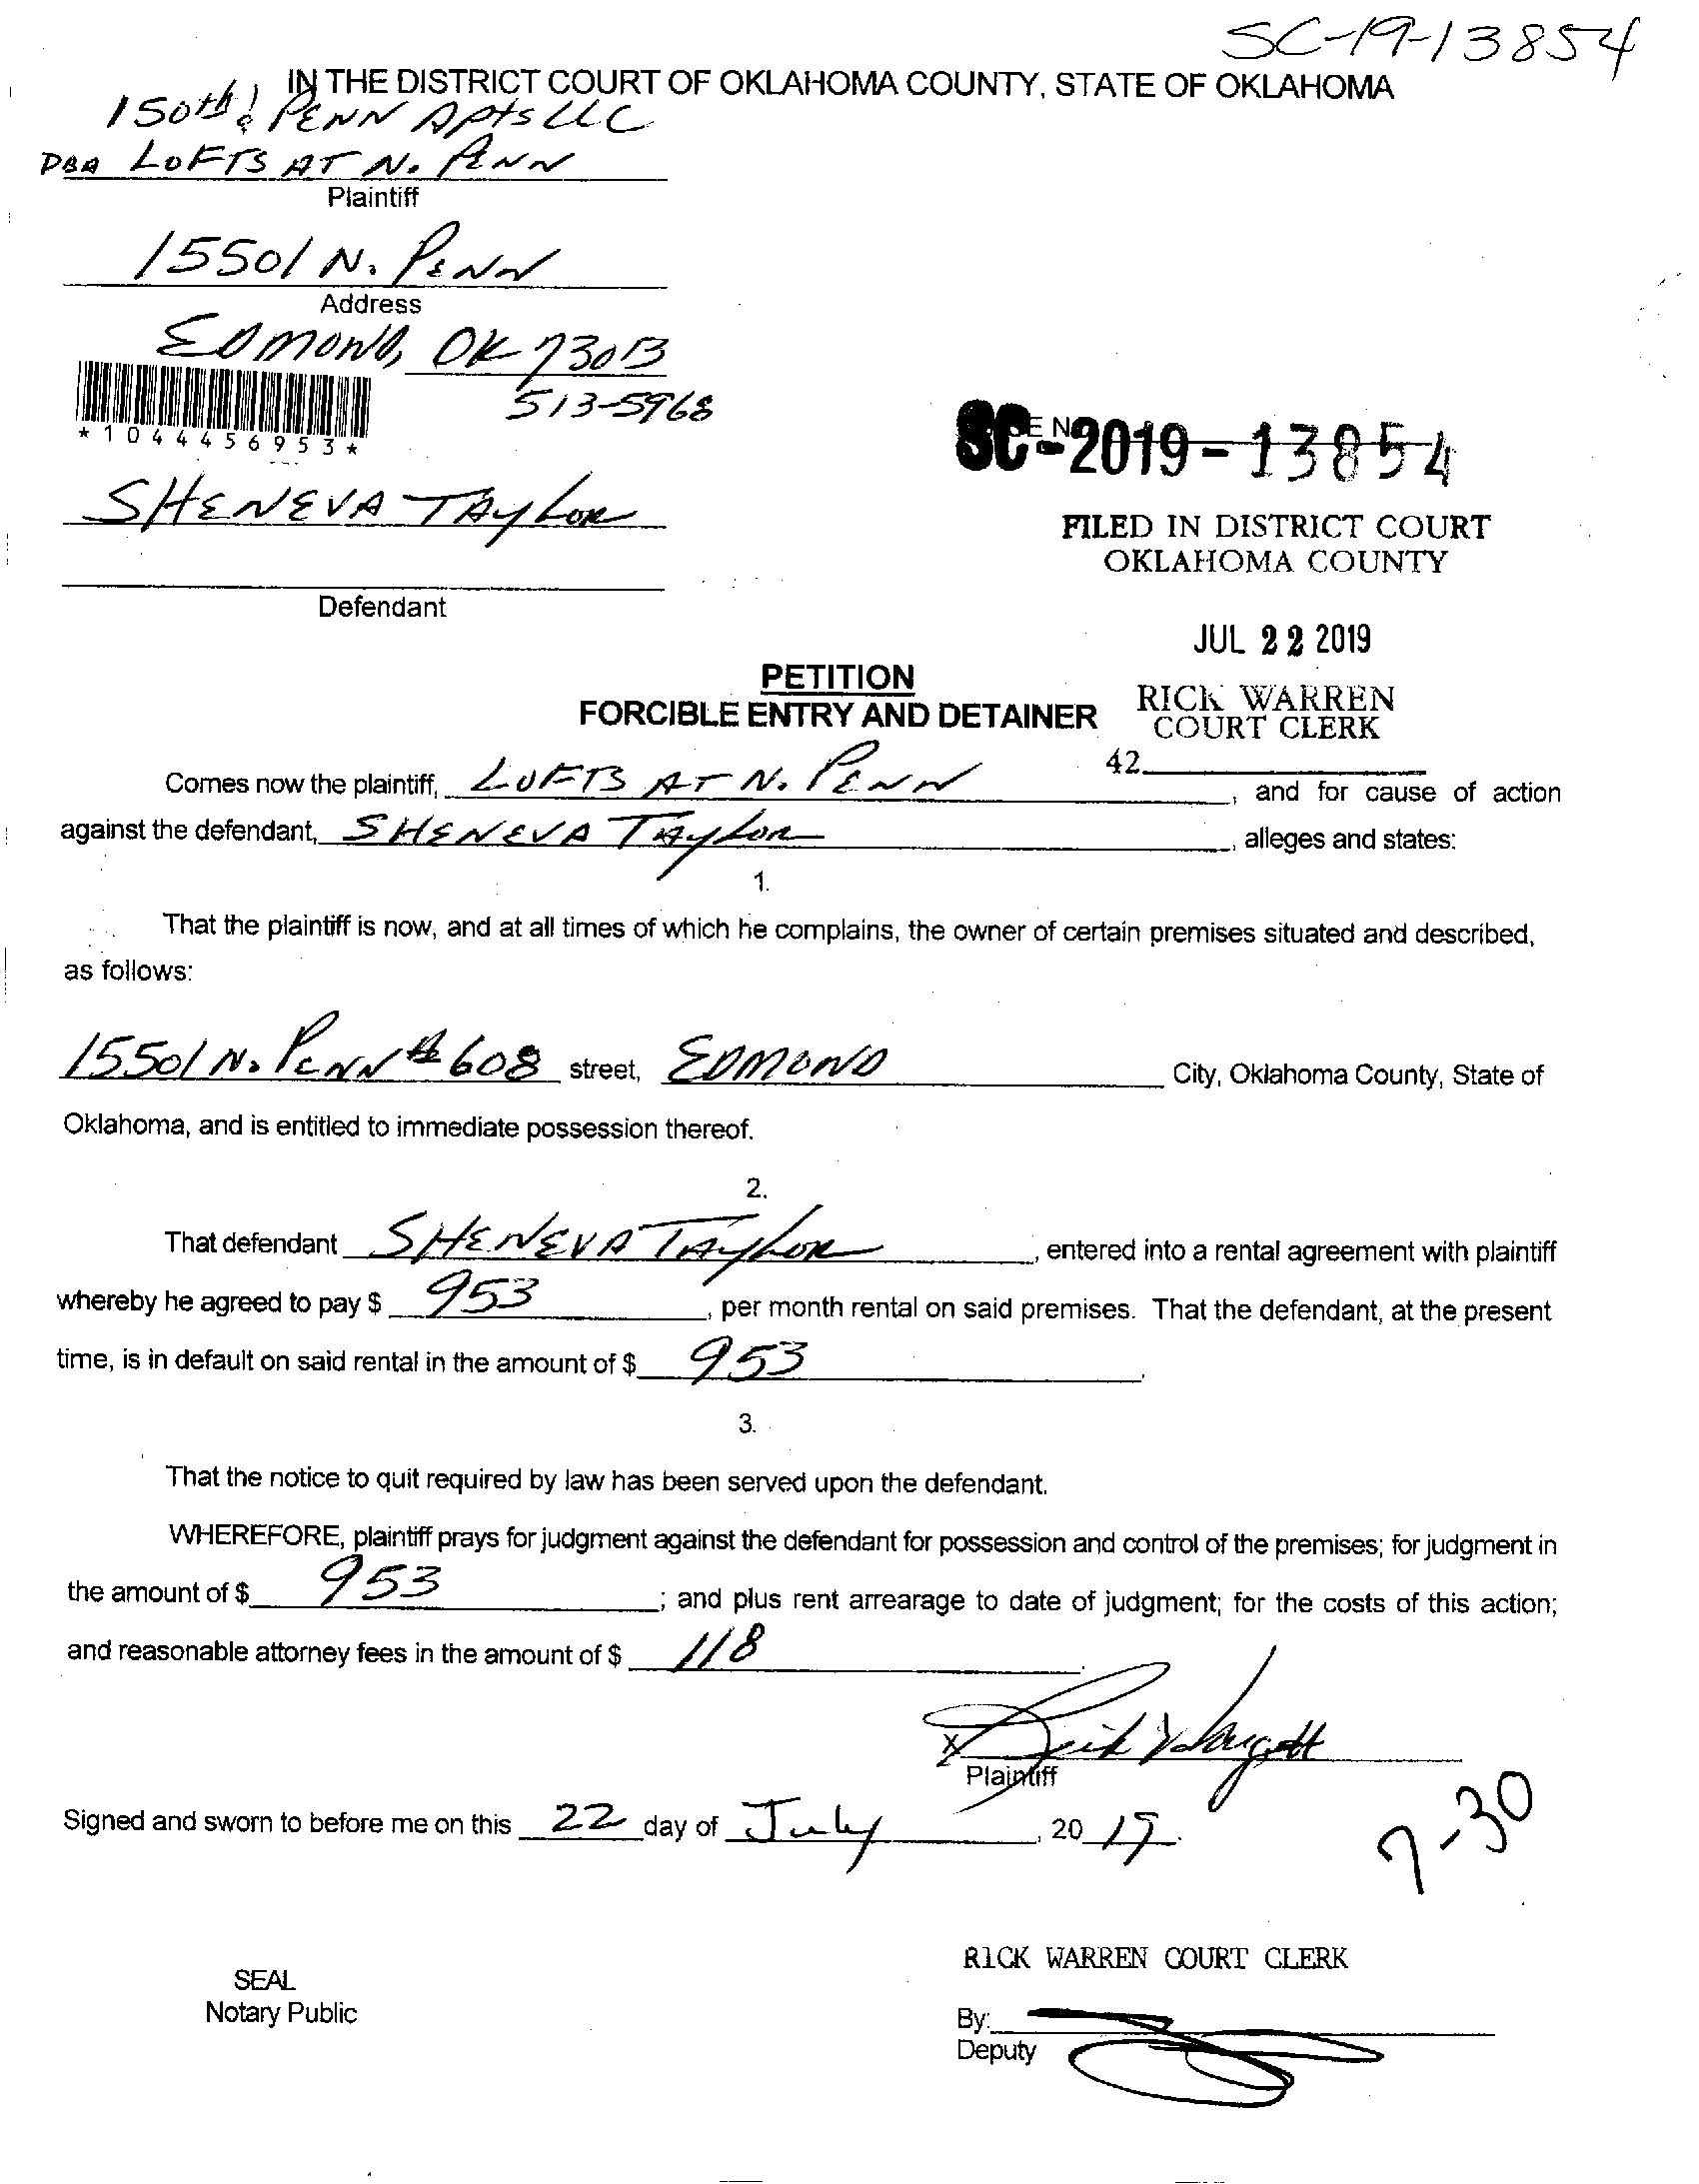 SC-19-13854
IN THE DISTRICT COURT OF OKLAHOMA COUNTY, STATE OF OKLAHOMA
150th & PENN APTS LLC
DBA LOFTS AT N. PENN
Plaintiff
15501 N. PENN
Address
EDMOND, OK 73013
513-5968
*1044456953*
SC-2019-13854
SHENEVA TAYLOR
FILED IN DISTRICT COURT
OKLAHOMA COUNTY
Defendant
JUL 22 2019
PETITION
FORCIBLE ENTRY AND DETAINER
RICK WARREN
COURT CLERK
42
Comes now the plaintiff, LOFTS AT N. PENN, and for cause of action
against the defendant, SHENEVA TAYLOR, alleges and states:
1.
That the plaintiff is now, and at all times of which he complains, the owner of certain premises situated and described,
as follows:
15501 N. PENN # 608 street, EDMOND City, Oklahoma County, State of
Oklahoma, and is entitled to immediate possession thereof.
2.
That defendant SHENEVA TAYLOR, entered into a rental agreement with plaintiff
whereby he agreed to pay $ 953, per month rental on said premises. That the defendant, at the present
time, is in default on said rental in the amount of $ 953.
3.
That the notice to quit required by law has been served upon the defendant.
WHEREFORE, plaintiff prays for judgment against the defendant for possession and control of the premises; for judgment in
the amount of $ 953; and plus rent arrearage to date of judgment; for the costs of this action;
and reasonable attorney fees in the amount of $ 118.
X
Plaintiff
Signed and sworn to before me on this 22 day of July, 2019.
7-30
RICK WARREN COURT CLERK
SEAL
Notary Public
By:
Deputy